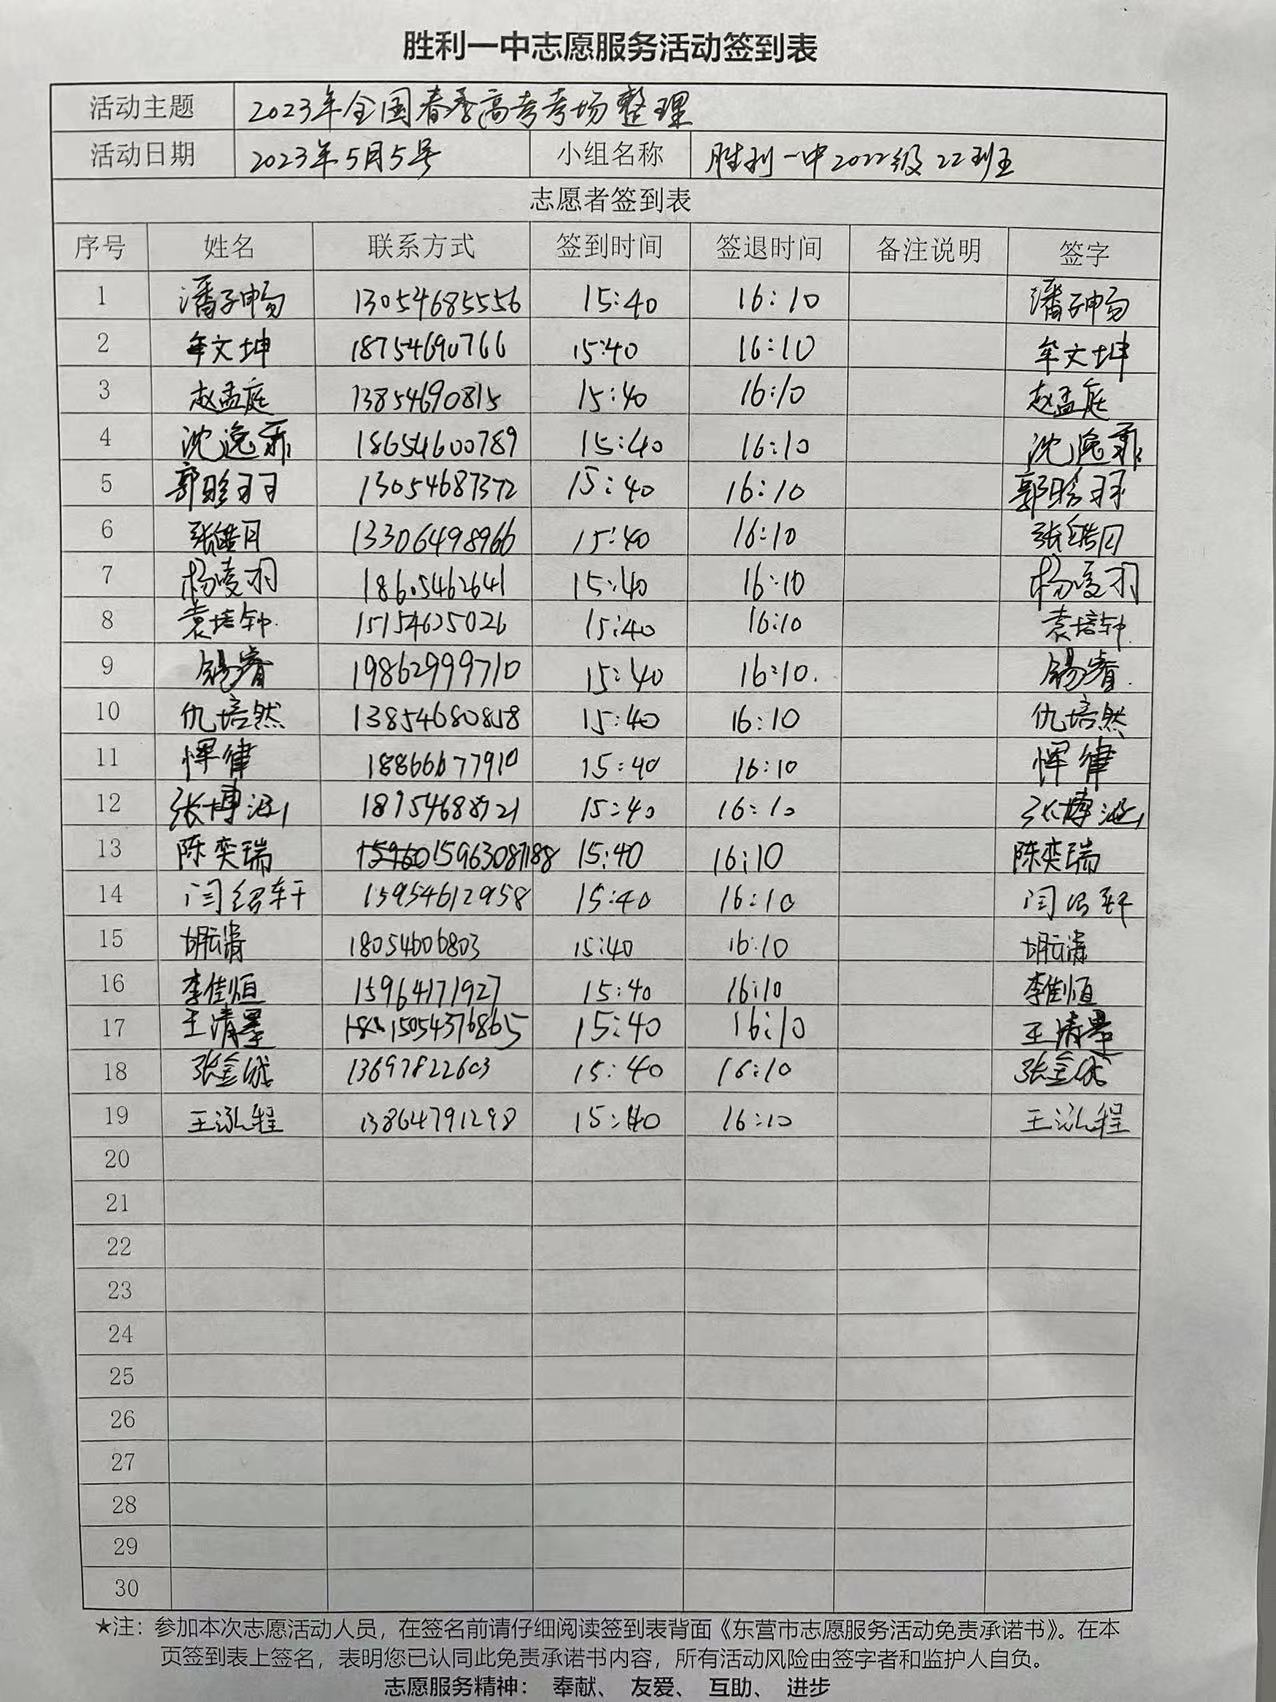 胜利一中志愿服务活动签到表
活动主题 2023年全国春季高考考场整理
活动日期 2023年5月5号 小组名称 胜利一中2022级22班
志愿者签到表
序号 姓名 联系方式 签到时间 签退时间 备注说明 签字
1 潘子畅 13054685556 15:40 16:10 潘子畅
2 牟文坤 18754690766 15:40 16:10 牟文坤
3 赵孟庭 13854690815 15:40 16:10 赵孟庭
4 沈逸霏 18654600789 15:40 16:10 沈逸霏
5 郭晗羽 13054687372 15:40 16:10 郭晗羽
6 张皓月 13306498966 15:40 16:10 张皓月
7 杨凌羽 15:40 16:10 杨凌羽
8 袁培钟 15154625026 15:40 16:10 袁培钟
9 19862999710 15:40 16:10
10 仇培然 13854680858 15:40 16:10 仇培然
11 恽律 18866677910 15:40 16:10 恽律
12 张博涵 15:40 16:10 张博涵
13 陈奕瑞 15963087188 15:40 16:10 陈奕瑞
14 闫绍轩 15954612958 15:40 16:10 闫绍轩
15 胡云清 18054606803 15:40 16:10 胡云清
16 李佳恒 15964171927 15:40 16:10 李佳恒
17 王清墨 15054376865 15:40 16:10 王清墨
18 张金成 13697822603 15:40 16:10 张金成
19 王泓程 13864791298 15:40 16:10 王泓程
20
21
22
23
24
25
26
27
28
29
30
★注：参加本次志愿活动人员，在签名前请仔细阅读签到表背面《东营市志愿服务活动免责承诺书》。在本
页签到表上签名，表明您已认同此免责承诺书内容，所有活动风险由签字者和监护人自负。
志愿服务精神： 奉献、 友爱、 互助、 进步